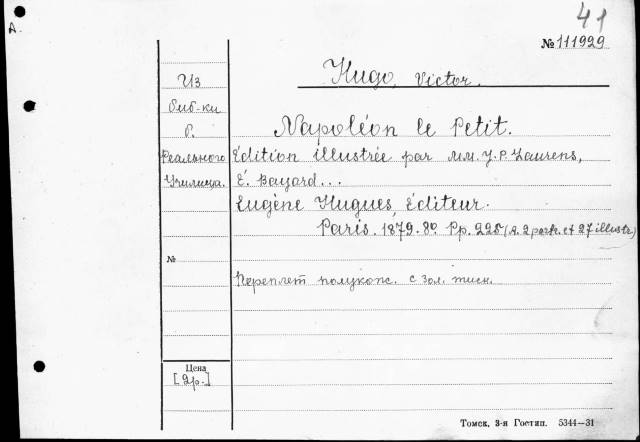 41
A.
№ 111929
Hugo, Victor.
Из
биб-ки
б.
Реального
Училища.
Napoléon le Petit.
Édition illustrée par MM. J. P. Laurens,
É. Bayard...
Eugène Hugues, Éditeur.
Paris. 1879. 8º. Pp. 225 (A. 2 portr. et 27 illustr.)
№
Переплет полукож. с зол. тисн.
Цена
[2р.]
Томск, 3-я Гостип. 5344—31